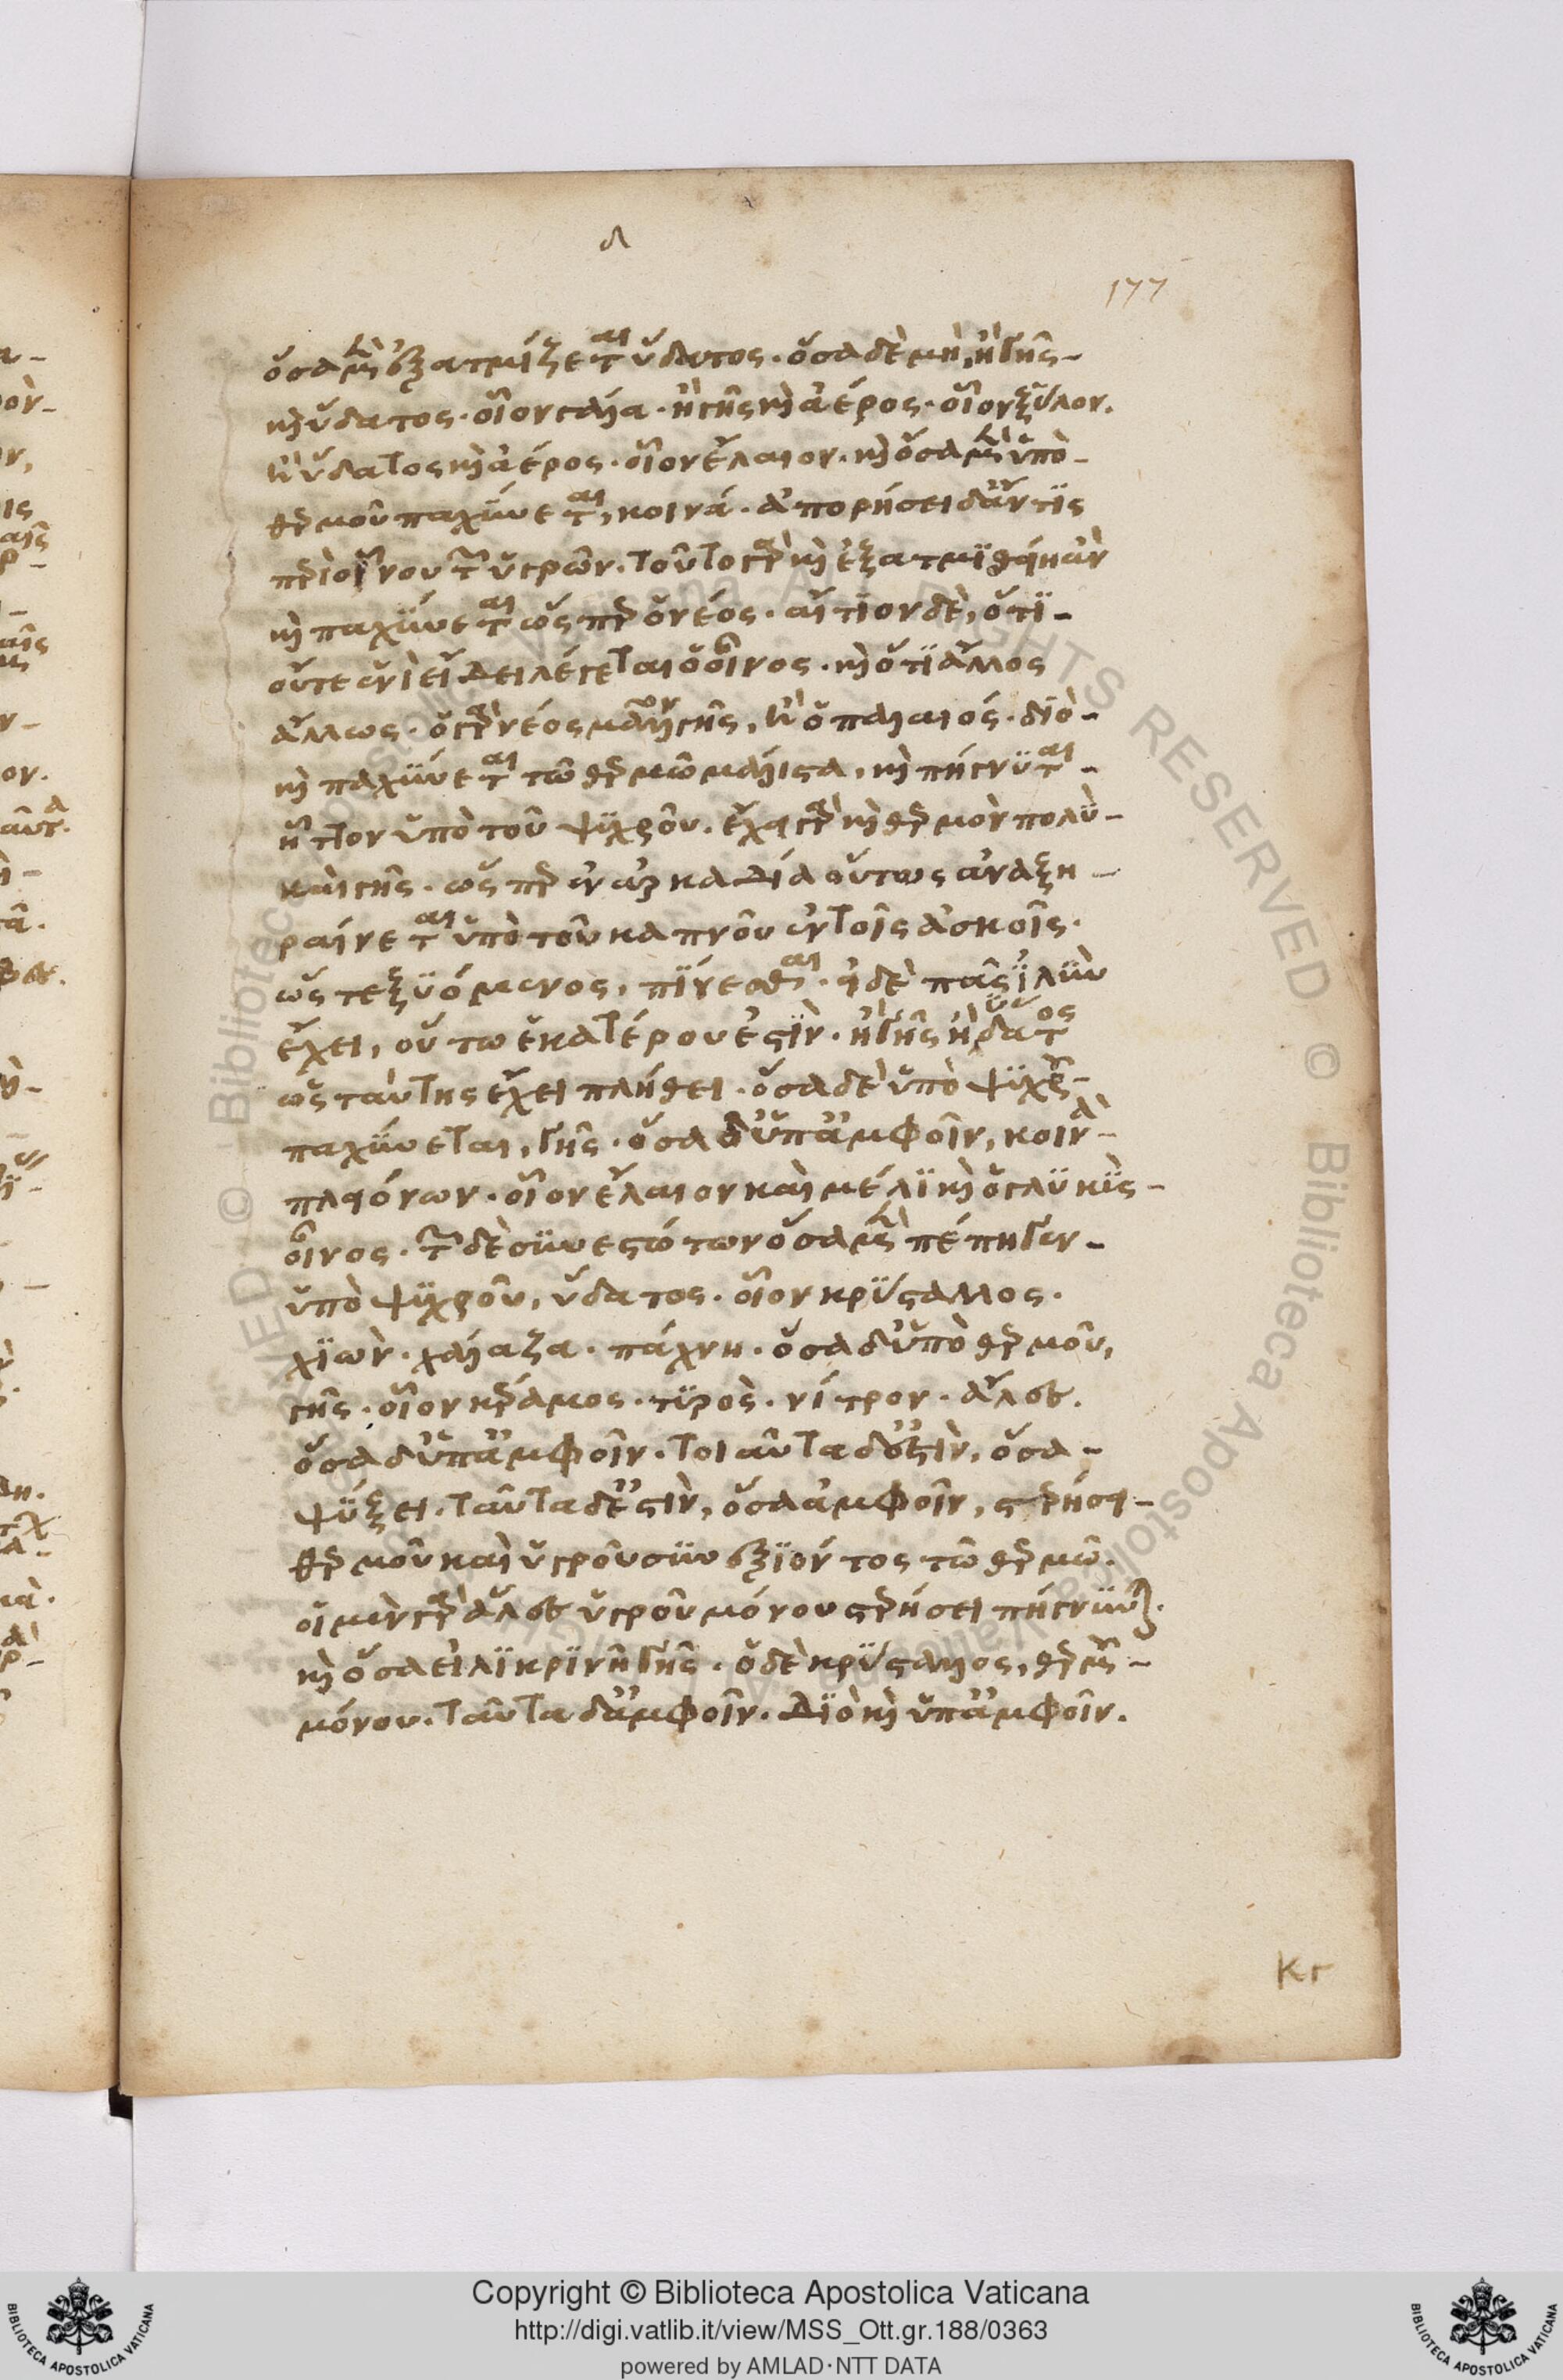 δ
177
ὅσα μὲν ἐξατμίζεται ὕδατος· ὅσα δὲ μὴ, ἢ γῆς
καὶ ὕδατος· οἷον γάλα· ἢ γῆς καὶ ἀέρος· οἷον ξύλον.
ἢ ὕδατος καὶ ἀέρος· οἷον ἔλαιον. καὶ ὅσα μὲν ὑπὸ
θερμοῦ παχύνεται, κοινά. ἀπορήσει δ' ἄν τις
περὶ οἴνου τῶν ὑγρῶν. τοῦτο γὰρ καὶ ἐξατμισθείη ἂν
καὶ παχύνεται ὥσπερ ὁ νέος. αἴτιον δὲ, ὅτι
οὔτε ἑνὶ εἴδει λέγεται ὁ οἶνος. καὶ ὅτι ἄλλος
ἄλλως. ὁ γὰρ νέος μᾶλλον γῆς, ἢ ὁ παλαιός. διὸ
καὶ παχύνεται τῶ θερμῶ μάλιστα, καὶ πήγνυται
ἧττον ὑπὸ τοῦ ψυχροῦ. ἔχει γὰρ καὶ θερμὸν πολὺ
καὶ γῆς. ὥσπερ ἐν ἀρκαδία οὕτως ἀναξη
ραίνεται ὑπὸ τοῦ καπνοῦ ἐν τοῖς ἀσκοῖς.
ὥστε ξυόμενος, πίνεσθαι. εἰ δὲ πᾶς ἰλὺν
ἔχει, οὕτω ἑκατέρου ἐστὶν. ἢ γῆς ἢ ὕδατος
ὡς ταύτης ἔχει πλήθει. ὅσα δὲ ὑπὸ ψυχροῦ
παχύνεται, γῆς. ὅσα δ' ὑπ' ἀμφοῖν, κοινὰ
πλειόνων. οἷον ἔλαιον καὶ μέλι καὶ ὁ γλυκὺς
οἶνος. τῶν δὲ συνεστώτων ὅσα μὲν πέπηγεν
ὑπὸ ψυχροῦ, ὕδατος. οἷον κρύσταλλος.
χιὼν. χάλαζα. πάχνη. ὅσα δ' ὑπὸ θερμοῦ,
γῆς. οἷον κέραμος. τυρὸς. νίτρον. ἅλες.
ὅσα δ' ὑπ' ἀμφοῖν. τοιαῦτα δ' ἐστὶν, ὅσα
ψύξει. ταῦτα δ' ἐστὶν, ὅσα ἀμφοῖν, στερήσει
θερμοῦ καὶ ὑγροῦ συνεξιόντος τῶ θερμῶ.
οἱ μὲν γὰρ ἅλες ὑγροῦ μόνου στερήσει πήγνυνται.
καὶ ὅσα εἰλικρινῆ γῆς. ὁ δὲ κρύσταλλος, θερμοῦ
μόνου. ταῦτα δ' ἀμφοῖν. διὸ καὶ ὑπ' ἀμφοῖν.
Κγ
Copyright © Biblioteca Apostolica Vaticana
http://digi.vatlib.it/view/MSS_Ott.gr.188/0363
powered by AMLAD·NTT DATA